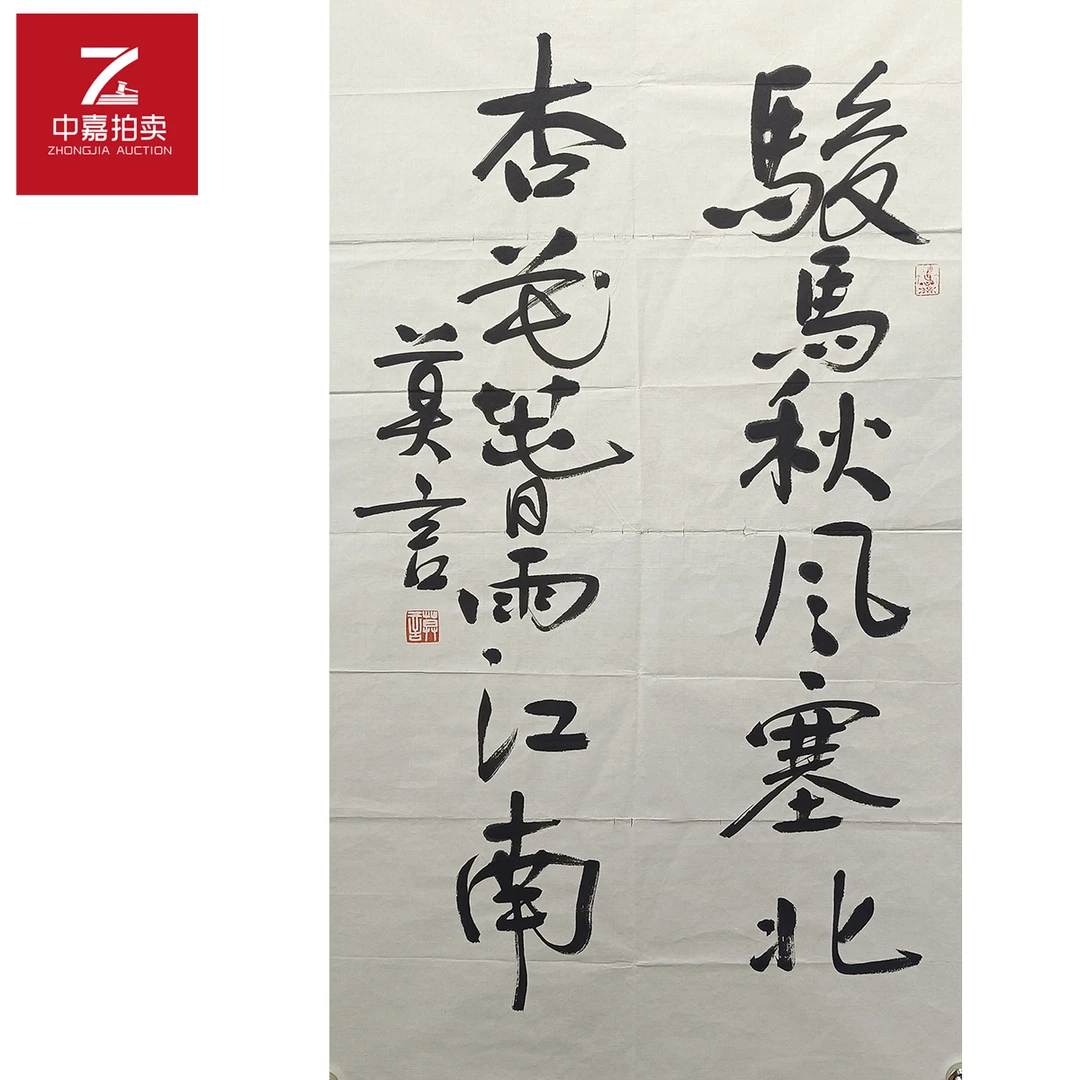 中嘉拍卖
ZHONGJIA AUCTION
駿馬秋风塞北
杏花萅雨江南
莫言
莫言